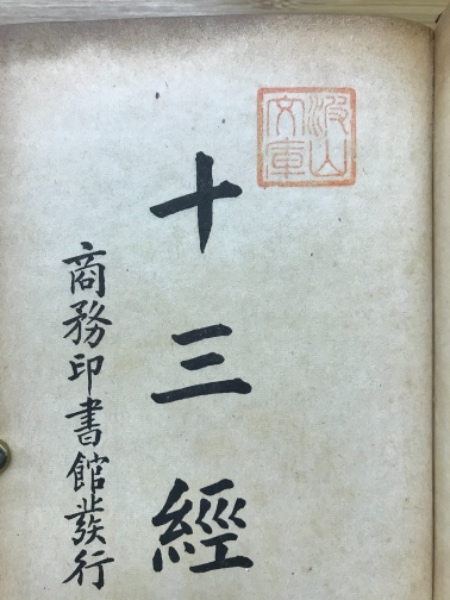 山
文庫
十三經
商務印書館發行